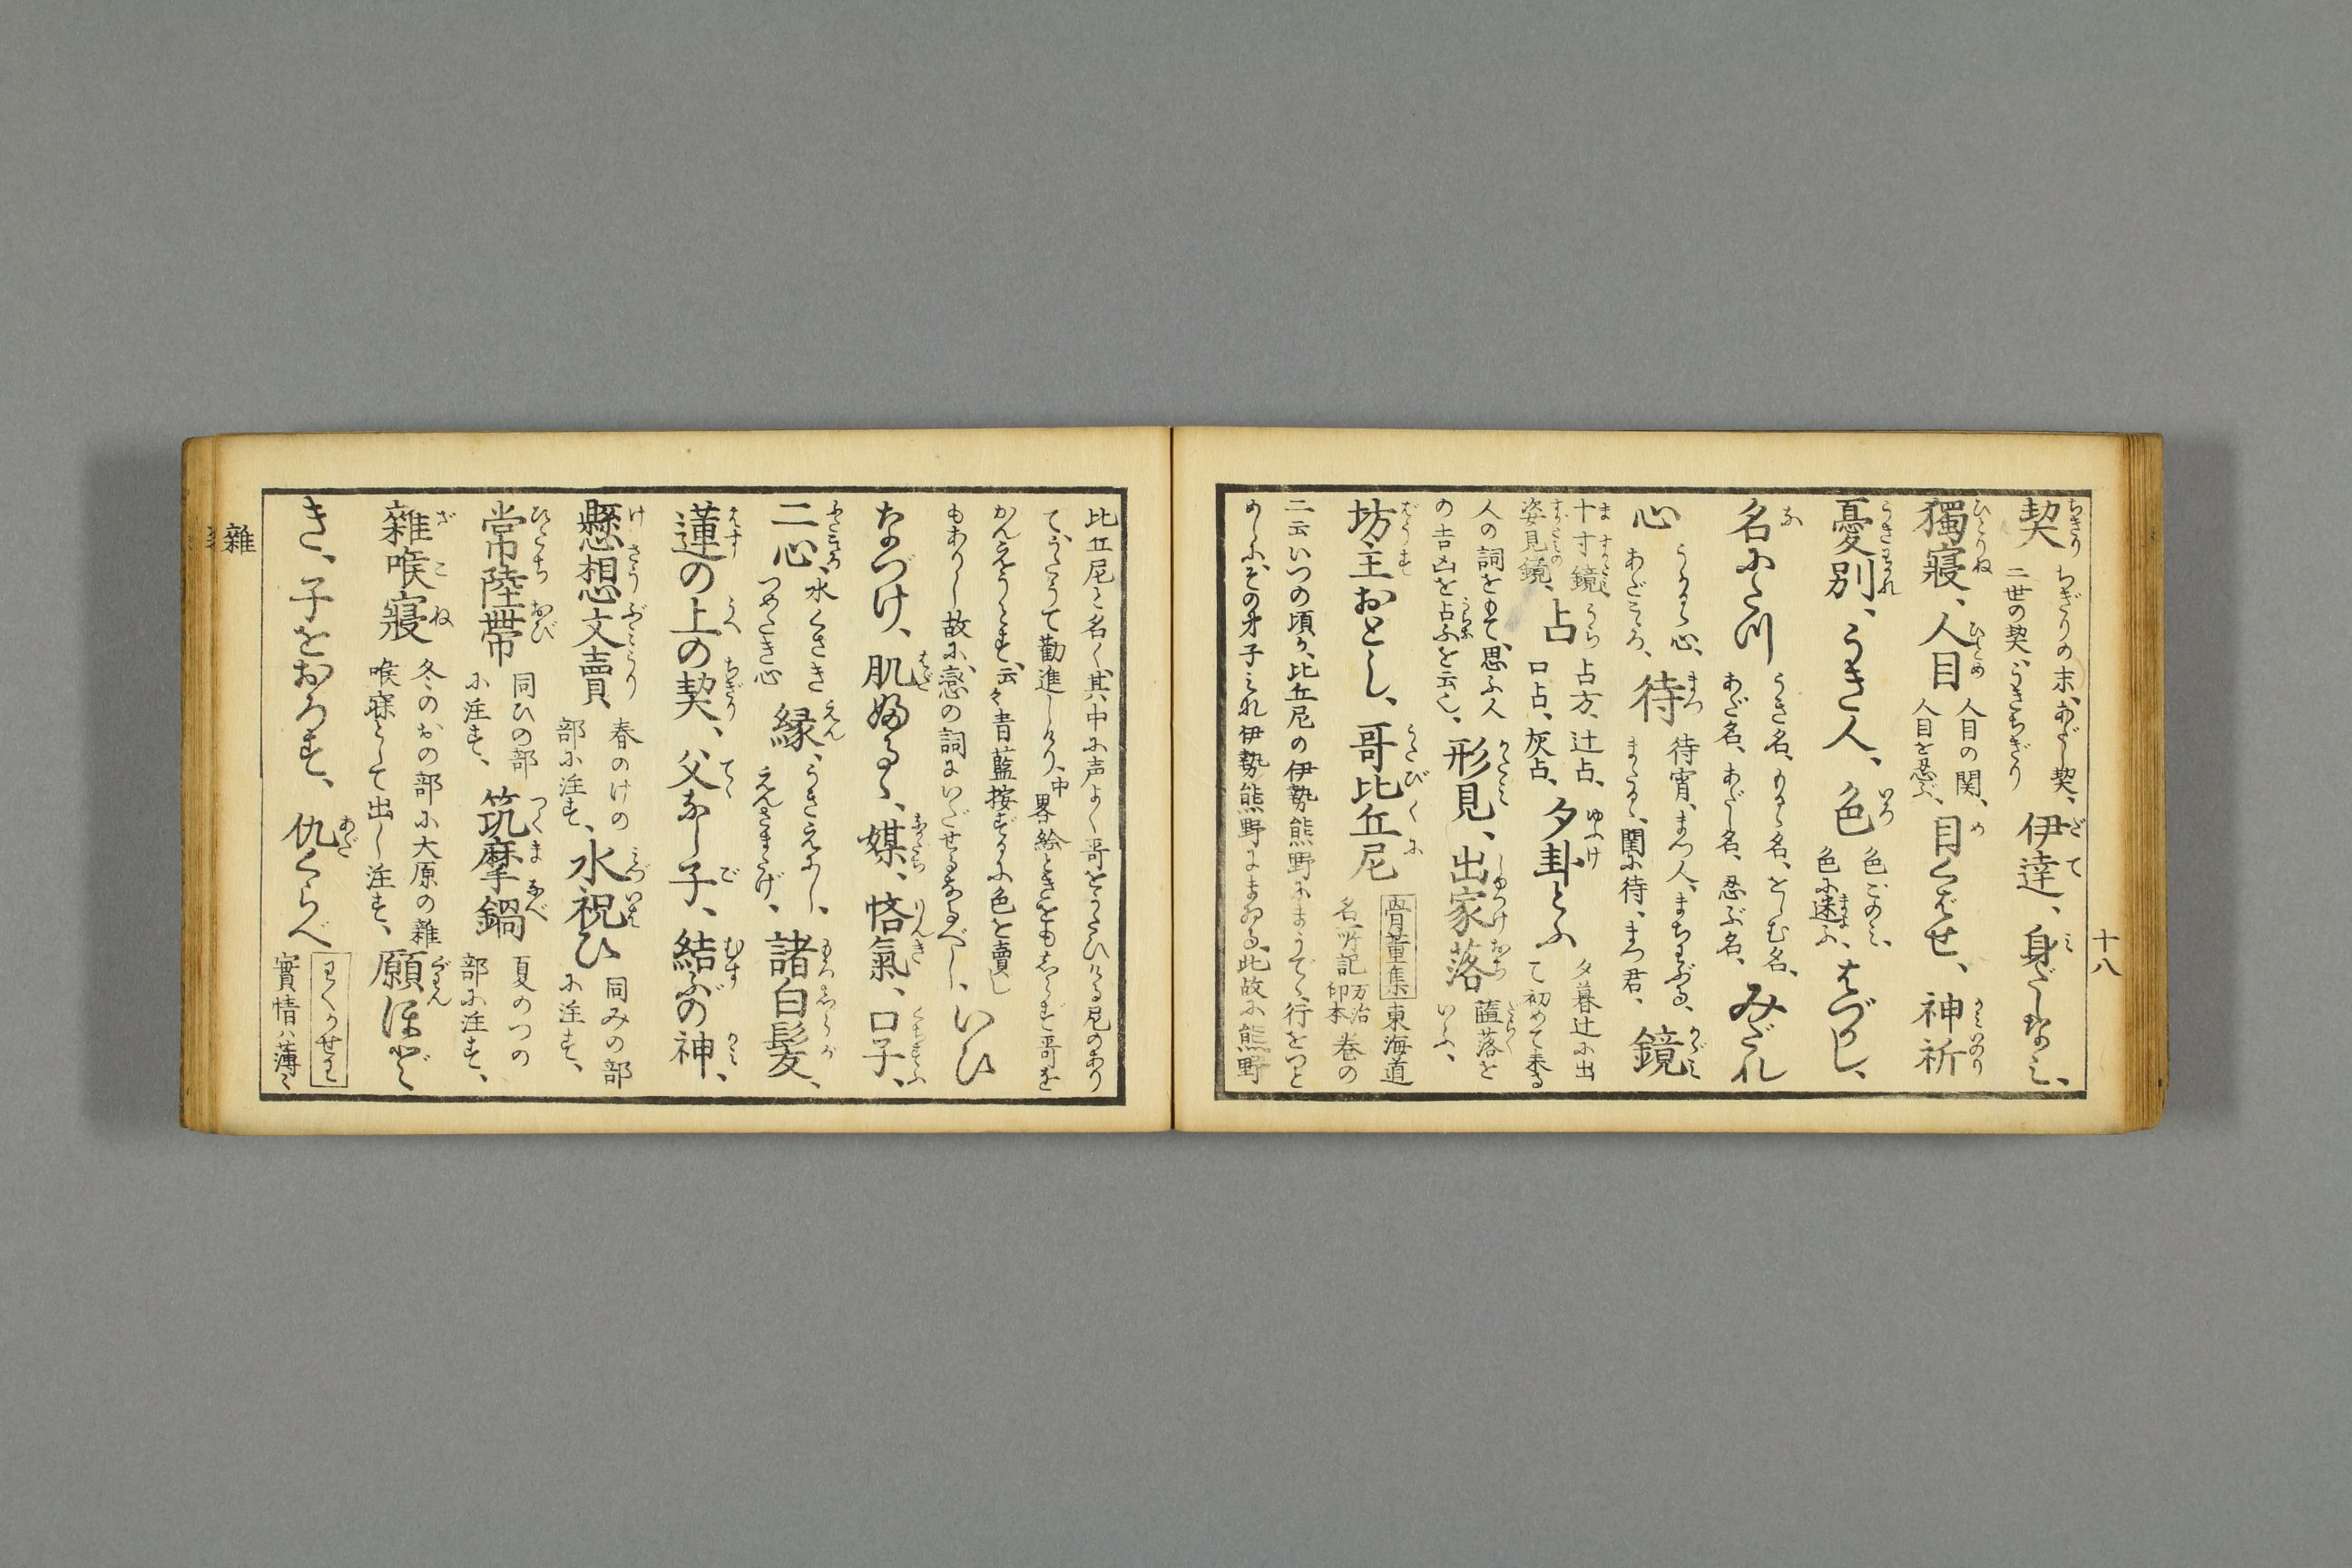 十八
契 ちぎりの末、あだし契、二世の契、うきちぎり 伊達、身だしなミ、
獨寢、人目 人目の関、人目を忍ぶ、目くばせ、神祈
憂別、うき人、色 色ごのミ、色に迷ふ、はづかし、
名にたつ うき名、もるゝ名、をしむ名、あだ名、あだし名、忍ぶ名、みだれ
心 うかるゝ心、あだこゝろ、待 待宵、まつ人、まちわぶる、またるゝ、閨に待、まつ君、鏡
十寸鏡、姿見鏡、占 うら 占方、辻占、口占、灰占、夕卦とふ 夕暮辻に出て初めて来る
人の詞をもて、思ふ人の吉凶を占ふを云く、形見、出家落 堕落をいふ、
坊主おとし、哥比丘尼 骨董集 東海道名所記 万治印本 巻の
二云いつの頃か、比丘尼の伊勢熊野にまうでゝ、行をつと
めしに、その弟子ミな伊勢熊野にまゐる、此故に熊野
比丘尼と名く、其中に声よく哥をうたひける尼のあり
て、うたうて勧進しけり、中畧 絵ときをもしらず哥を
かんえうとす、云々 昔藍按ずるに色を賣し
もありし故に、恋の詞にいだせるなるべし、いひ
なづけ、肌ふるゝ、媒、悋氣、口予、
二心、水くさき つめたき心 縁、うきえにし、えんさまたげ、諸白髪、
蓮の上の契、父なし子、結ぶの神、
懸想文賣、春のけの部に注す、水祝ひ 同みの部に注す、
常陸帶 同ひの部に注す、筑摩鍋 夏のつの部に注す、
雜喉寢 冬のおの部に大原の雜喉寐として出し注す、願ほど
き、子をおろす、仇くらべ わくかせわ 實情ハ薄ミ
雜